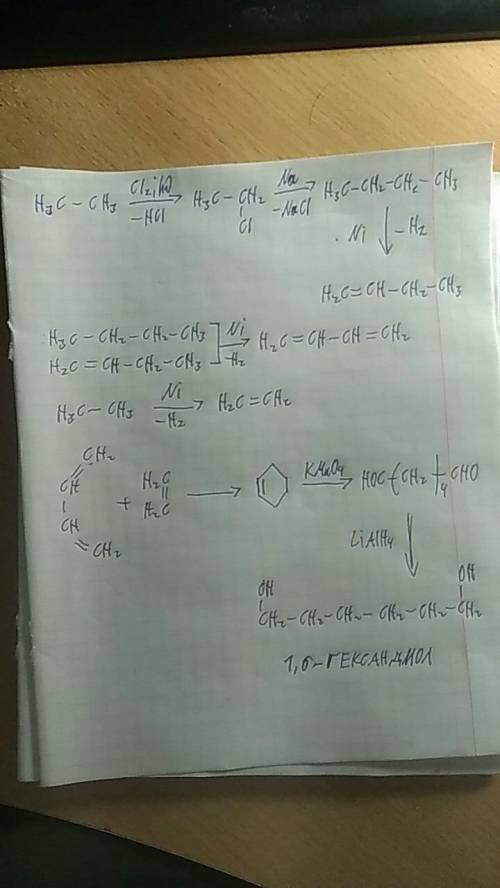 H₃C – CH₃ Cl₂, hυ –HCl → H₃C – CH₂ Cl Na –NaCl → H₃C–CH₂–CH₂–CH₃
Ni ↓ –H₂
H₂C=CH–CH₂–CH₃
H₃C – CH₂ – CH₂ – CH₃
H₂C = CH – CH₂ – CH₃ ] Ni –H₂ → H₂C=CH–CH=CH₂
H₃C – CH₃ Ni –H₂ → H₂C=CH₂
CH₂
CH
CH
CH₂
+ H₂C
H₂C → KMnO₄ → HOC–(CH₂)–₄ CHO
LiAlH₄ ↓
OH OH
CH₂–CH₂–CH₂–CH₂–CH₂–CH₂
1,6-ГЕКСАНДИОЛ